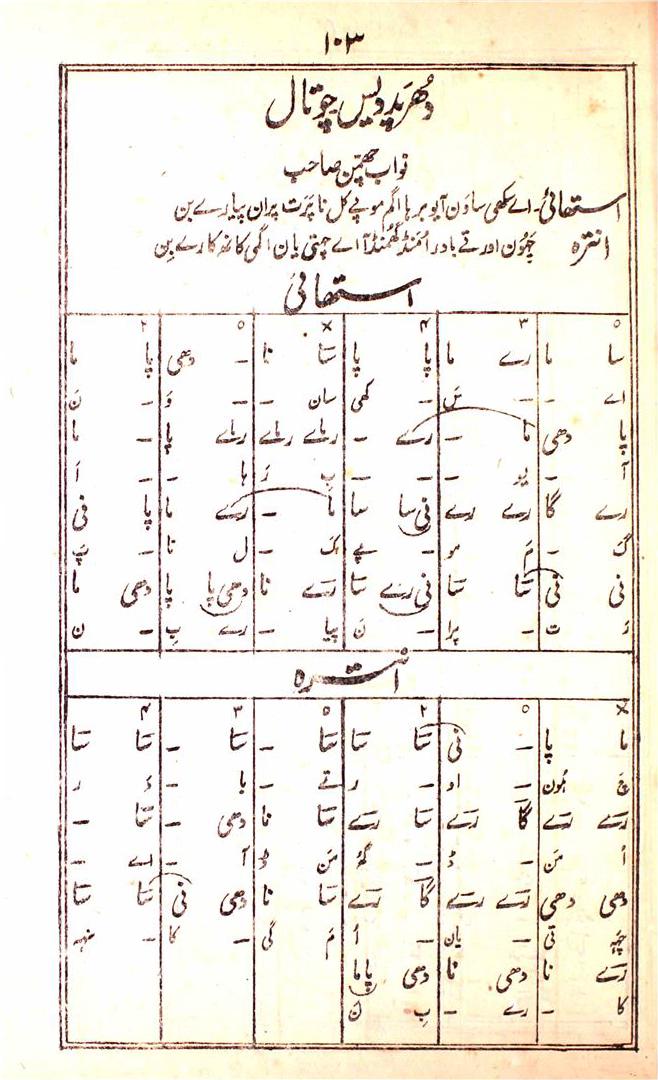 ۱۰۳
دُھرپد دیس چوتال
نواب چھمّن صاحب
استھائی۔ اے سکھی ساون آیو برہا اگم موپے کل نا پرت پران پیارے بن
انترہ چہُون اور تے بادر اُمنڈ گھُمنڈ آ اے چپتی یان اگی کا نھ کارے بِن
استھائی
۰ ۳ ۴ × ۰ ۲
سا ما رے ما پا پا سَا نا - دھی پا ما
اے - - سَ - کھی سان - - وَ - نَ
پا دھی مَا - رے - رمے رمے رمے پا - ما
آ - یو - - - بِ رَ ہا - - اَ
رے گا رے رے نی سا سا ما - رے ما پا نی
گَ - مَ مو - پے کَ - ل نا - پَ
نی نی سَا سَا نی رے سَا رے نا دھی پا پا دھی ما
رَ ت - پرا - نَ پیا - رے بِ - ن
انترہ
× ۰ ۲ ۰ ۳ ۴
ما پا - نی سَا سَا سَا - سَا - سَا سَا
چَ ہُون - او - ر تے - با - دَ ر
رے رے گا رے سَا رے سَا نا دھی - سَا -
اُ مَن - ڈ - گھُ مَن ڈ آ - اے -
دھی دھی رے رے گا رے سَا نا دھی نی سَا سَا
چَپ تی - یان - اَ مَ گی - کا -
رے نا دھی نا دھی پا ما
کا - رے - بِ نَ